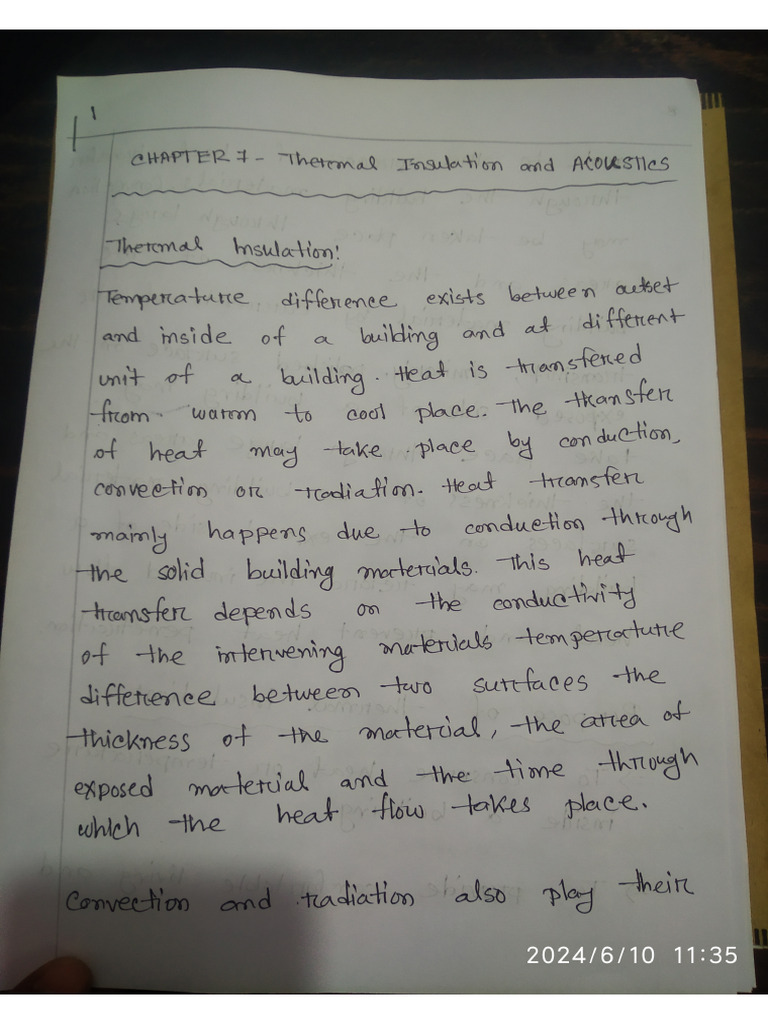 1
CHAPTER 7 - Thermal Insulation and ACOUSTICS
Thermal Insulation:
Temperature difference exists between outset
and inside of a building and at different
unit of a building. Heat is transfered
from warm to cool place. The transfer
of heat may take place by conduction,
convection or radiation. Heat transfer
mainly happens due to conduction through
the solid building materials. This heat
transfer depends on the conductivity
of the intervening materials temperature
difference between two surfaces the
thickness of the material, the area of
exposed material and the time through
which the heat flow takes place.
Convection and radiation also play their
2024/6/10 11:35